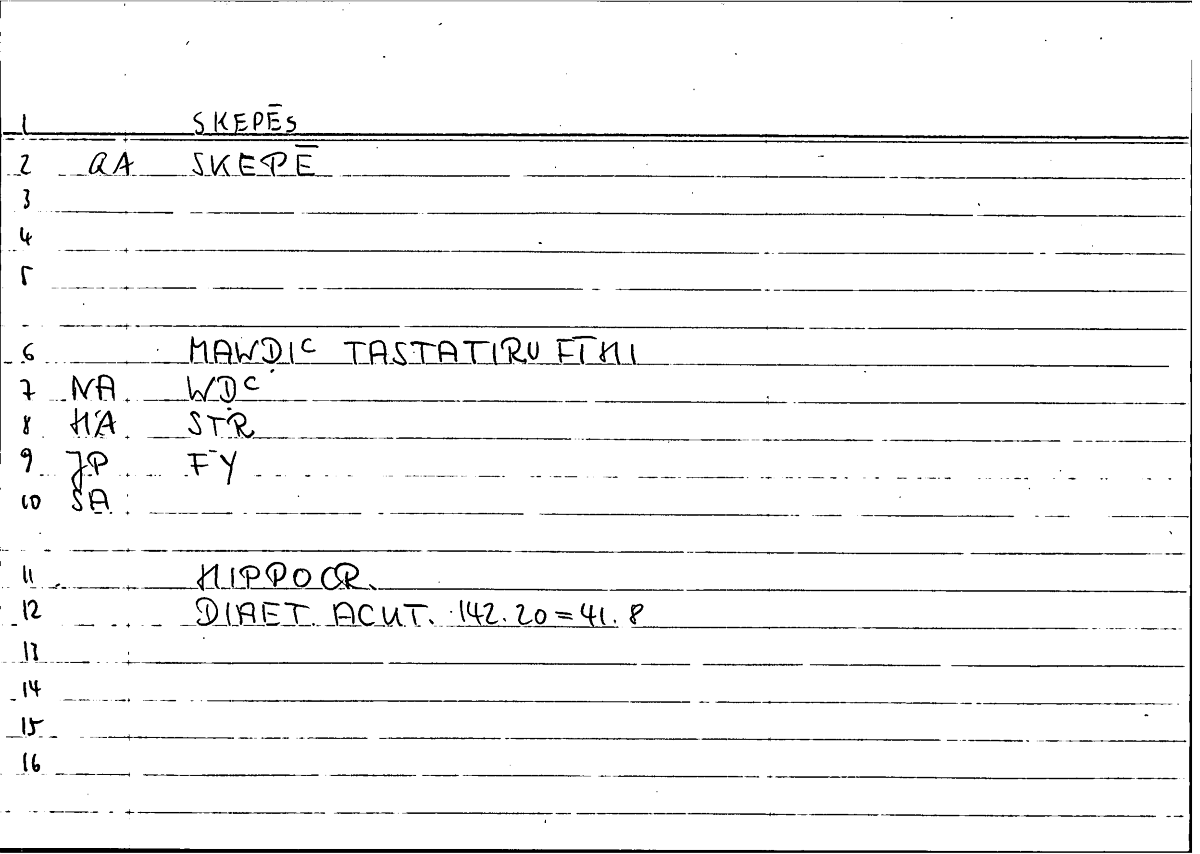 1 SKEPĒS
2 QA SKEPĒ
3
4
5
6 MAWḌIC TASTATIRU FĪHI
7 NA WḌC
8 HA STR
9 JP FY
10 SA
11 HIPPOCR.
12 DIAET. ACUT. 142.20=41.8
13
14
15
16